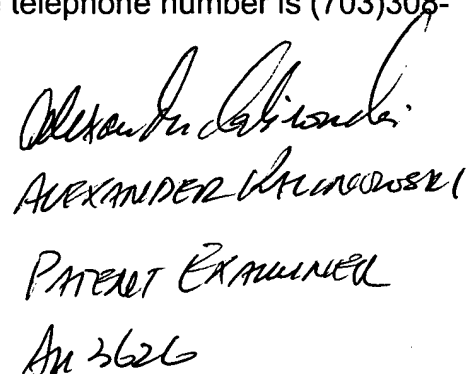 telephone number is (703)308-
Alexander Kalinowski
ALEXANDER KALINOWSKI
PATENT EXAMINER
AU 3626